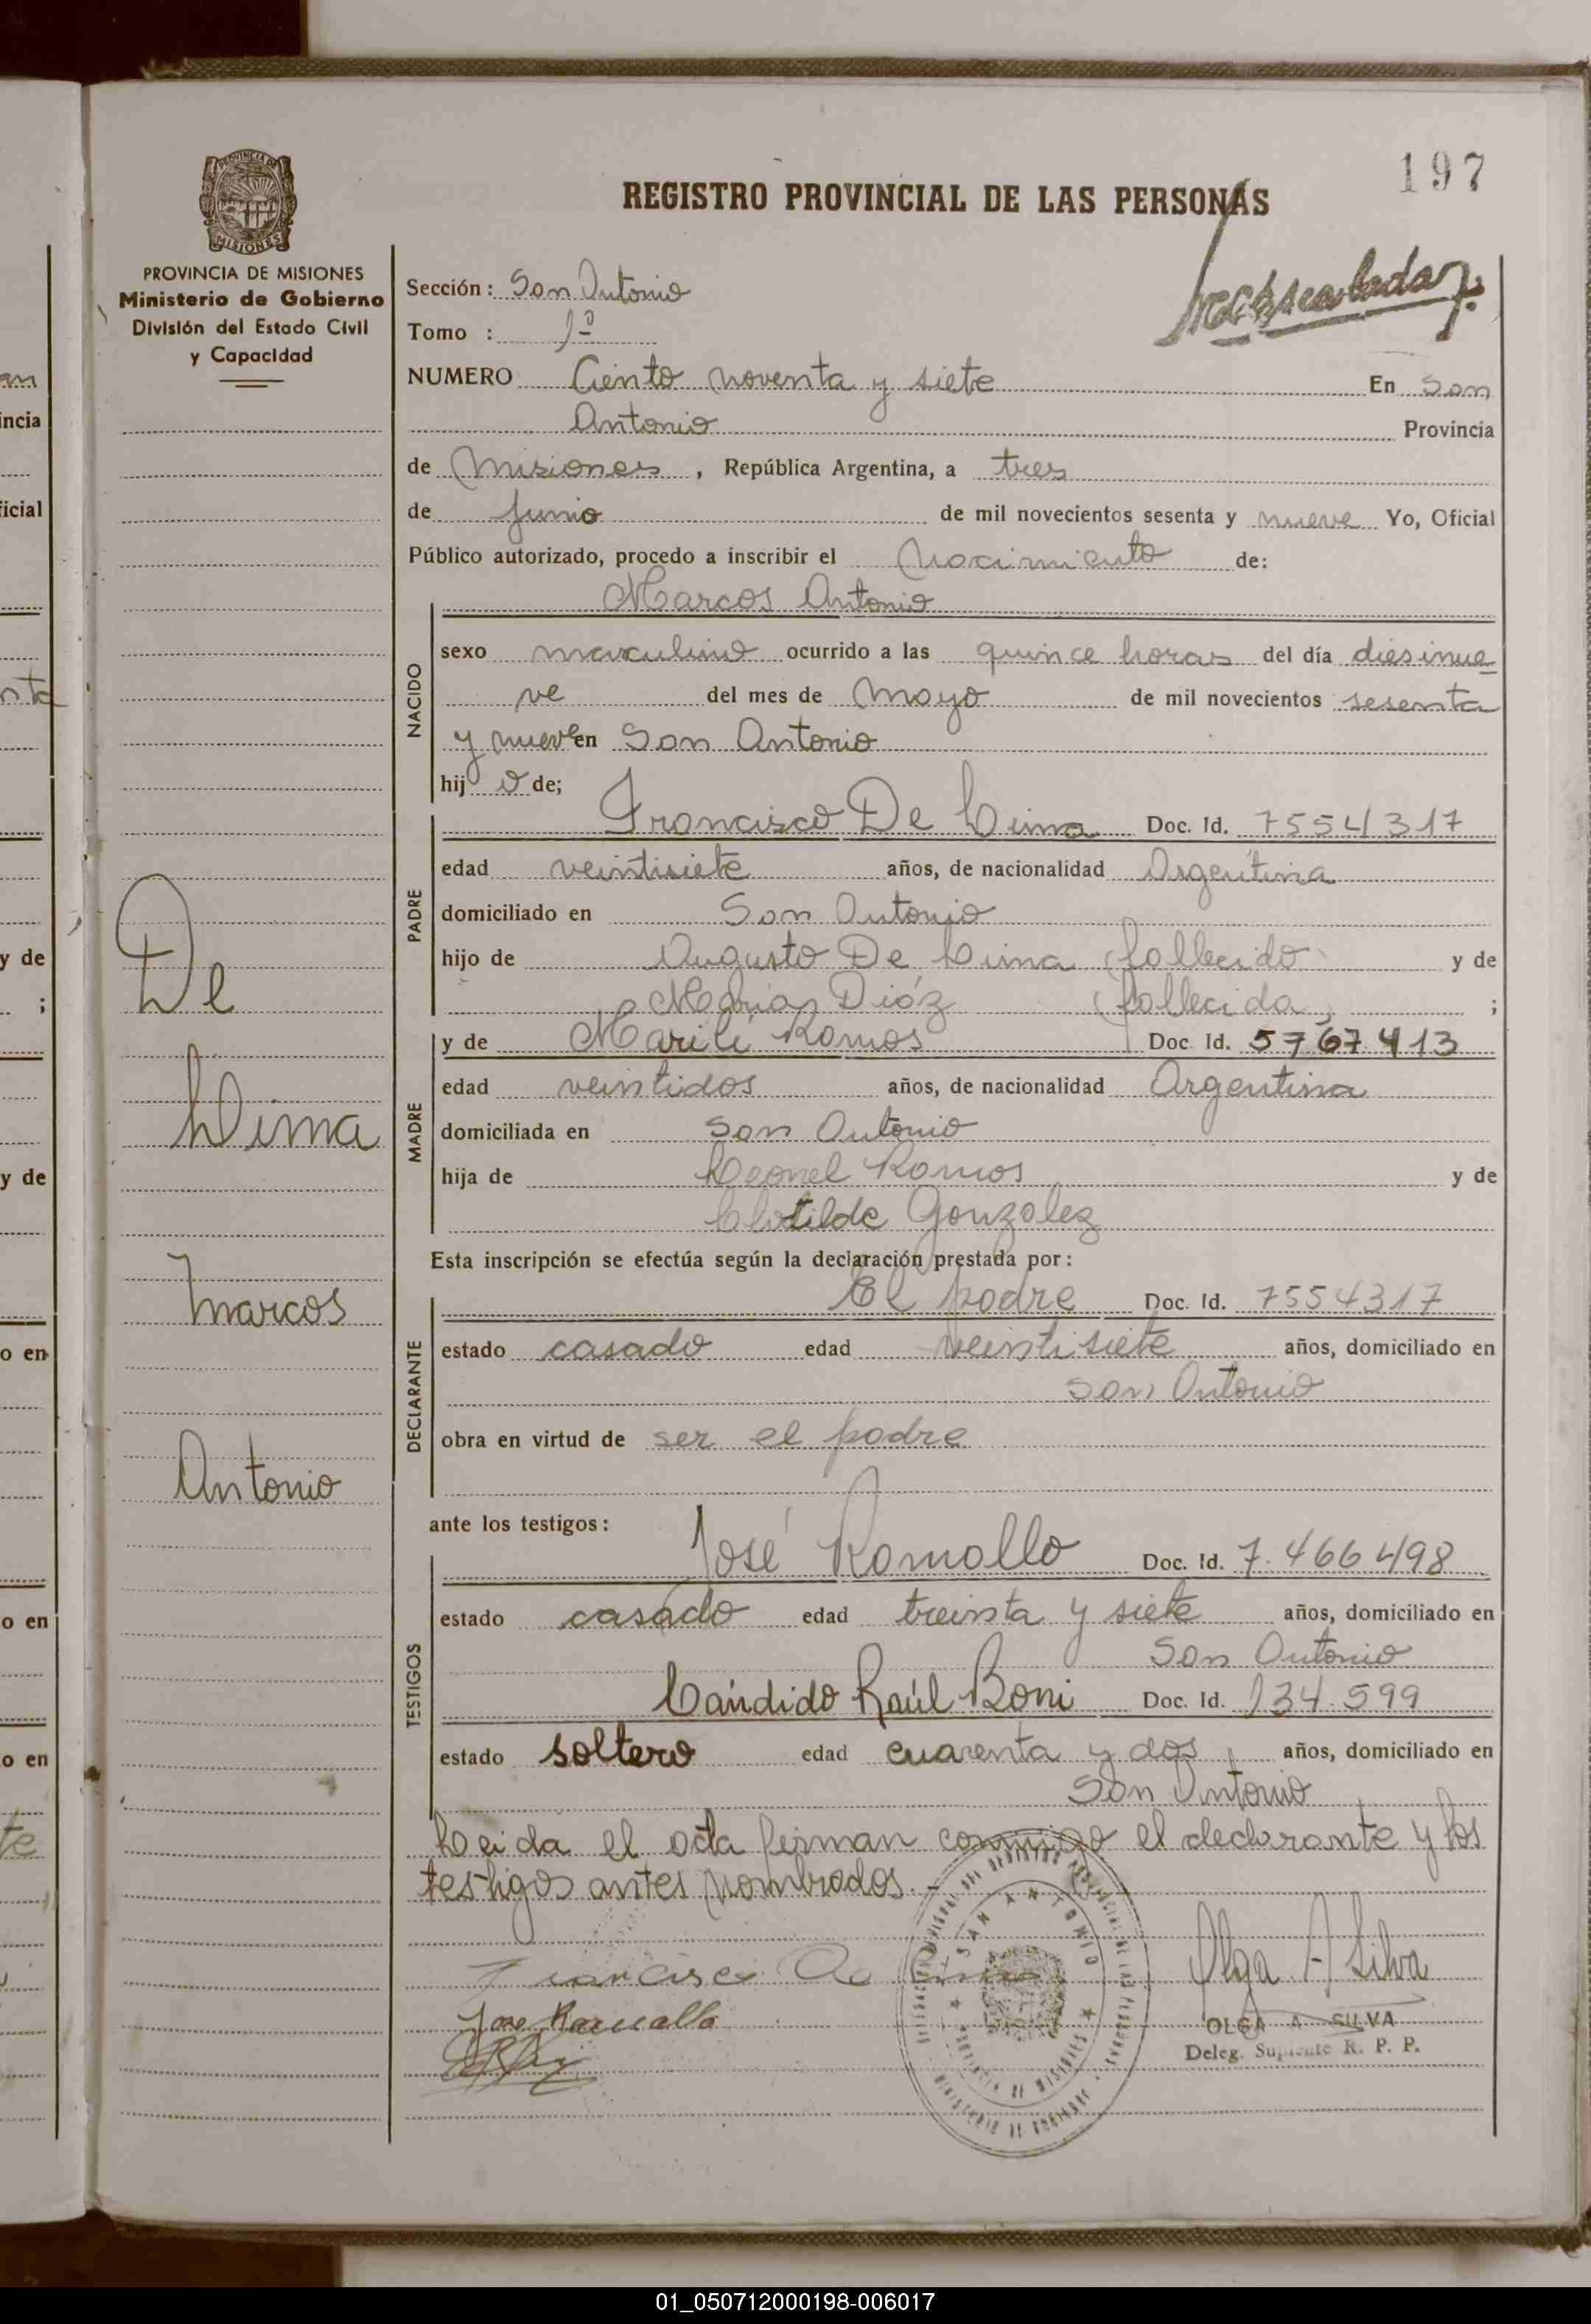 197
REGISTRO PROVINCIAL DE LAS PERSONAS
PROVINCIA DE MISIONES
Ministerio de Gobierno
División del Estado Civil
y Capacidad
Sección: San Antonio
Tomo : 1º
NUMERO Ciento noventa y siete En San
Antonio Provincia
de Misiones, República Argentina, a tres
de Junio de mil novecientos sesenta y nueve Yo, Oficial
Público autorizado, procedo a inscribir el Nacimiento de:
Marcos Antonio
NACIDO
sexo masculino ocurrido a las quince horas del día diesinue
ve del mes de Mayo de mil novecientos sesenta
y nueve en San Antonio
hijo de;
PADRE
Francisco De Lima Doc. Id. 7554317
edad veintisiete años, de nacionalidad Argentina
domiciliado en San Antonio
hijo de Augusto De Lima (fallecido) y de
María Dióz (fallecida) ;
MADRE
y de Marili Ramos Doc. Id. 5767413
edad veintidos años, de nacionalidad Argentina
domiciliada en San Antonio
hija de Leonel Ramos y de
Clotilde Gonzalez
Esta inscripción se efectúa según la declaración prestada por:
DECLARANTE
El padre Doc. Id. 7554317
estado casado edad veintisiete años, domiciliado en
San Antonio
obra en virtud de ser el padre
ante los testigos:
TESTIGOS
José Ramallo Doc. Id. 7.466498
estado casado edad treinta y siete años, domiciliado en
San Antonio
Cándido Raúl Boni Doc. Id. 134.599
estado soltero edad cuarenta y dos años, domiciliado en
San Antonio
Leida el acta firman conmigo el declarante y los
testigos antes nombrados.-
Francisco De Lima
Jose Ramallo
Olga A Silva
OLGA A SILVA
Deleg. Suplente R. P. P.
SAN ANTONIO
De
Lima
Marcos
Antonio
01_050712000198-006017